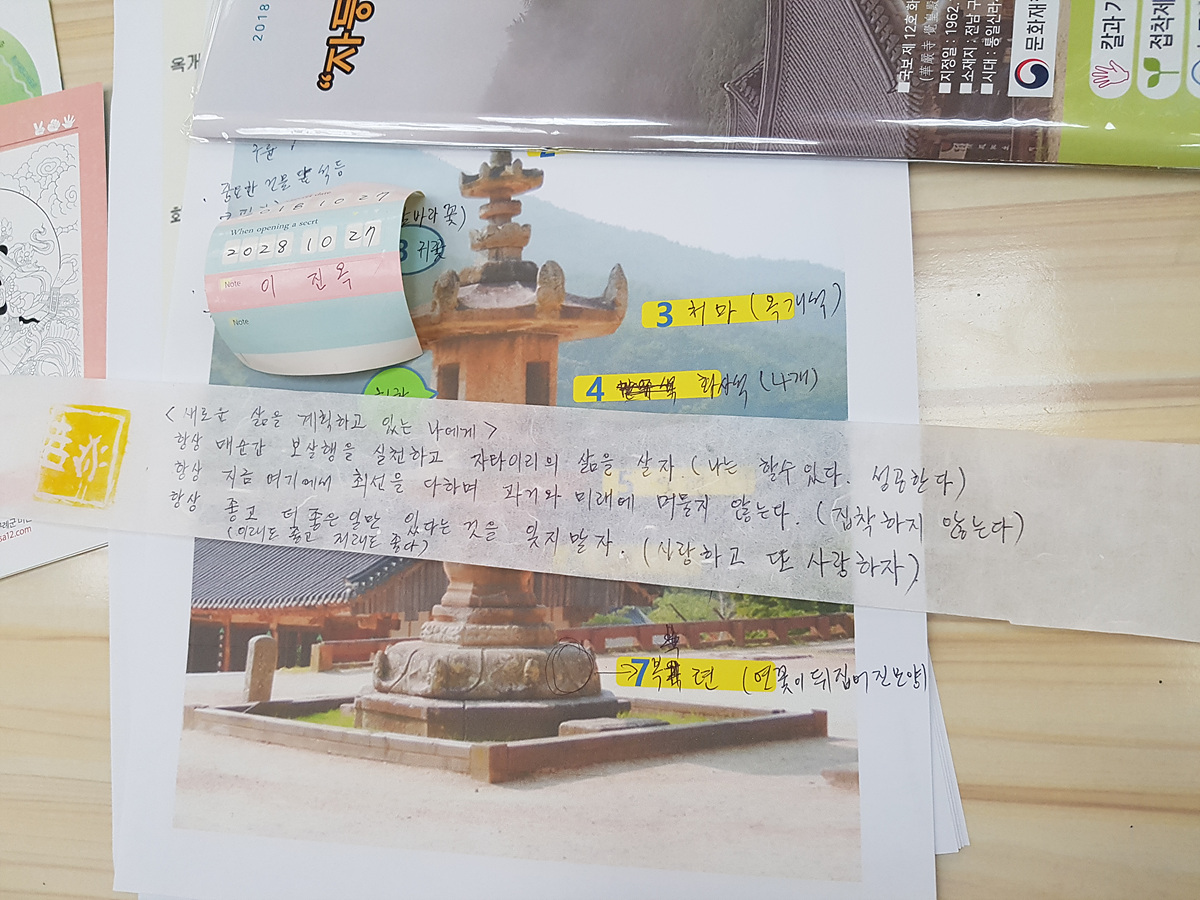 2018
"자등
국보 제 12호 화
(華嚴寺 覺皇殿
지정일 : 1962.
소재지 : 전남 구
시대 : 통일신라
문화재
칼과 가
접착제
옥개
화
중요한 건물 앞 석등
2018 10 27
바라 꽃)
When opening a secrt
2028 10 27
Note 이 진 옥
Note
3 귀꽃
3 처마 (옥개석)
4 화사석 (나개)
<새로운 삶을 계획하고 있는 나에게>
항상 매순간 보살행을 실천하고 자타이리의 삶을 살자. (나는 할수 있다. 성공한다)
항상 지금 여기에서 최선을 다하며 과거와 미래에 머물지 않는다. (집착하지 않는다)
항상 좋고 더 좋은 일만 있다는 것을 잊지 말자. (사랑하고 또 사랑하자)
(이래도 좋고 저래도 좋다)
5
sa12.com
7 복련 (연꽃이 뒤집어진모양)